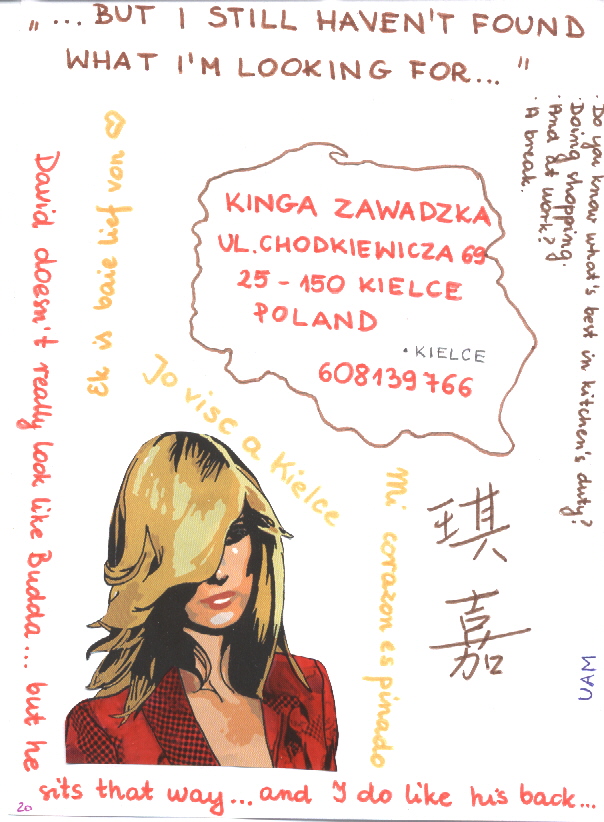 „... BUT I STILL HAVEN'T FOUND
WHAT I'M LOOKING FOR..."
· Do you know what's best in kitchen's duty?
· Doing shopping.
· And at work?
· A break.
KINGA ZAWADZKA
UL. CHODKIEWICZA 69
25 - 150 KIELCE
POLAND
• KIELCE
608139766
Ek is baie lief von
Jo visc a Kielce
Mi corazon es pinado
琪
嘉
UAM
David doesn't really look like Budda... but he
sits that way... and I do like his back...
20